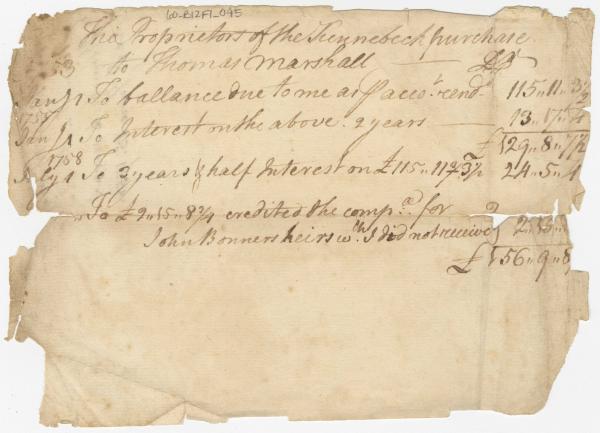 60-R12F1-045
The Proprietors of the Kennebeck purchase
53 to Thomas Marshall — Dr
Jany 1 To ballance due to me as ℘ accot. rendd. 115„11„3½
Jany 1 To Interest on the above 2 years — 13„17„4
£129„8„7½
1758
July 1 To 3 years & half Interest on £115„11„3½ 24„5„4
To £2„15„8¾ credited the compa. for
John Bonners heirs wch. I did not receive } 2„15„
£156„9„8